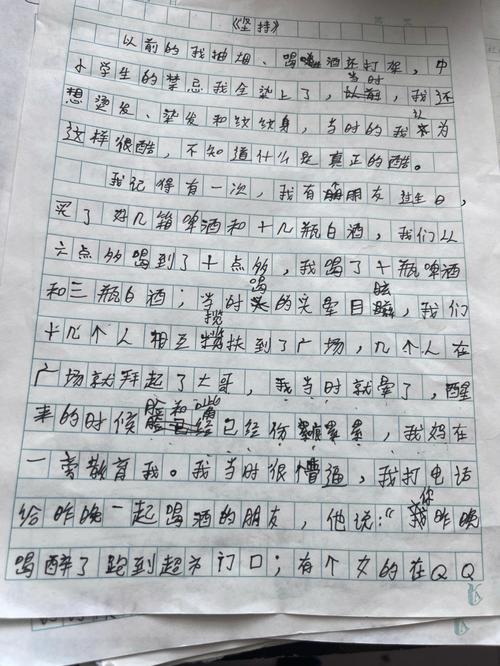 《坚持》
以前的我抽烟、喝酒还打架,中
当时
小学生的禁忌我全染上了,我还
想烫发、染发和纹纹身,当时的我认为
这样很酷,不知道什么是真正的酷。
我记得有一次,我有个朋友过生日,
买了好几箱啤酒和十几瓶白酒,我们从
六点多喝到了十点多,我喝了十瓶啤酒
和三瓶白酒;当时喝的头晕目眩,我们
十几个人相互搀扶到了广场,几个人在
广场就拜起了大哥,我当时就晕了,醒
来的时候脸和嘴已经伤累累,我妈在
一旁教育我。我当时很懵逼,我打电话
给昨晚一起喝酒的朋友,他说:“你昨晚
喝醉了跑到超市门口;有个女的在QQ